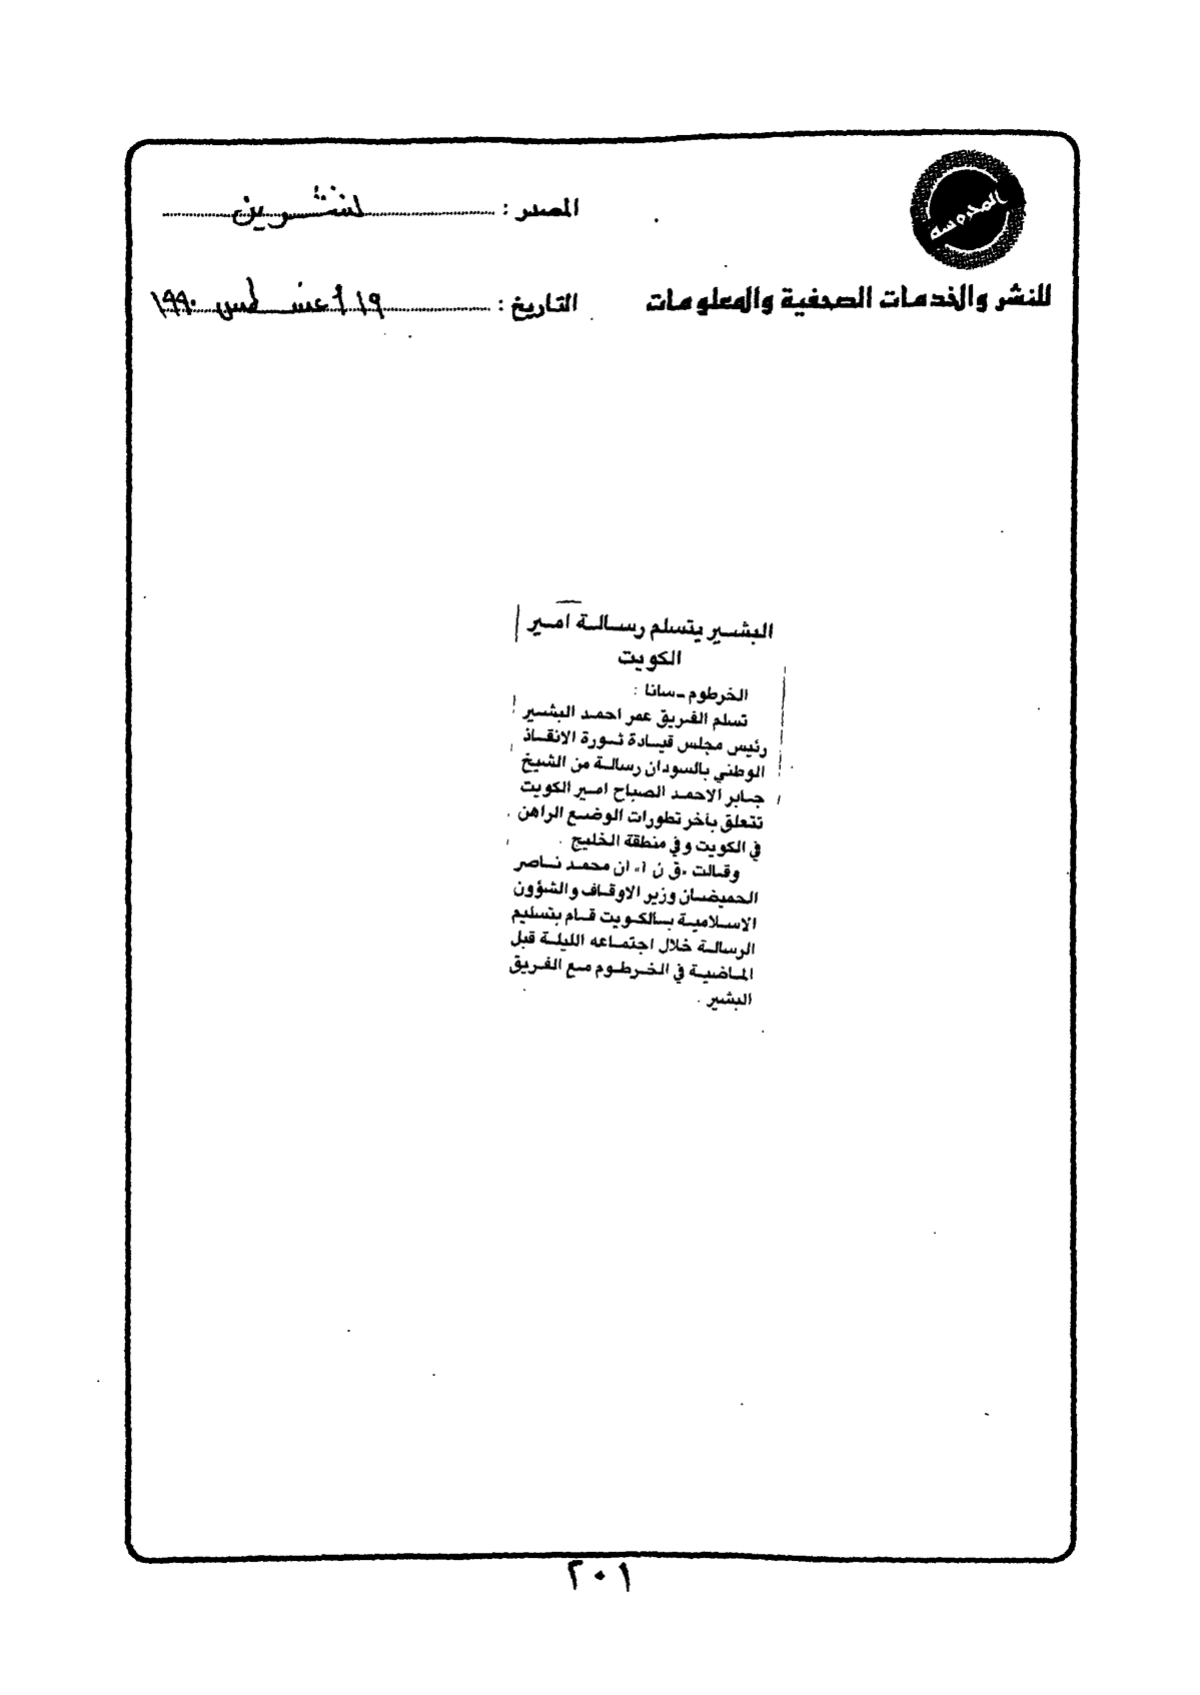 المحروسه
للنشر والخدمات الصحفية والمعلومات
المصدر : تشرين
التاريخ : ١٩ أغسطس ١٩٩٠
البشير يتسلم رسالة امير
الكويت
الخرطوم - سانا :
تسلم الفريق عمر احمد البشير
رئيس مجلس قيادة ثورة الانقاذ
الوطني بالسودان رسالة من الشيخ
جابر الاحمد الصباح امير الكويت
تتعلق بآخر تطورات الوضع الراهن
في الكويت وفي منطقة الخليج .
وقالت ،ق ن ا، ان محمد ناصر
الحميضان وزير الاوقاف والشؤون
الاسلامية بالكويت قام بتسليم
الرسالة خلال اجتماعه الليلة قبل
الماضية في الخرطوم مع الفريق
البشير .
٢٠١